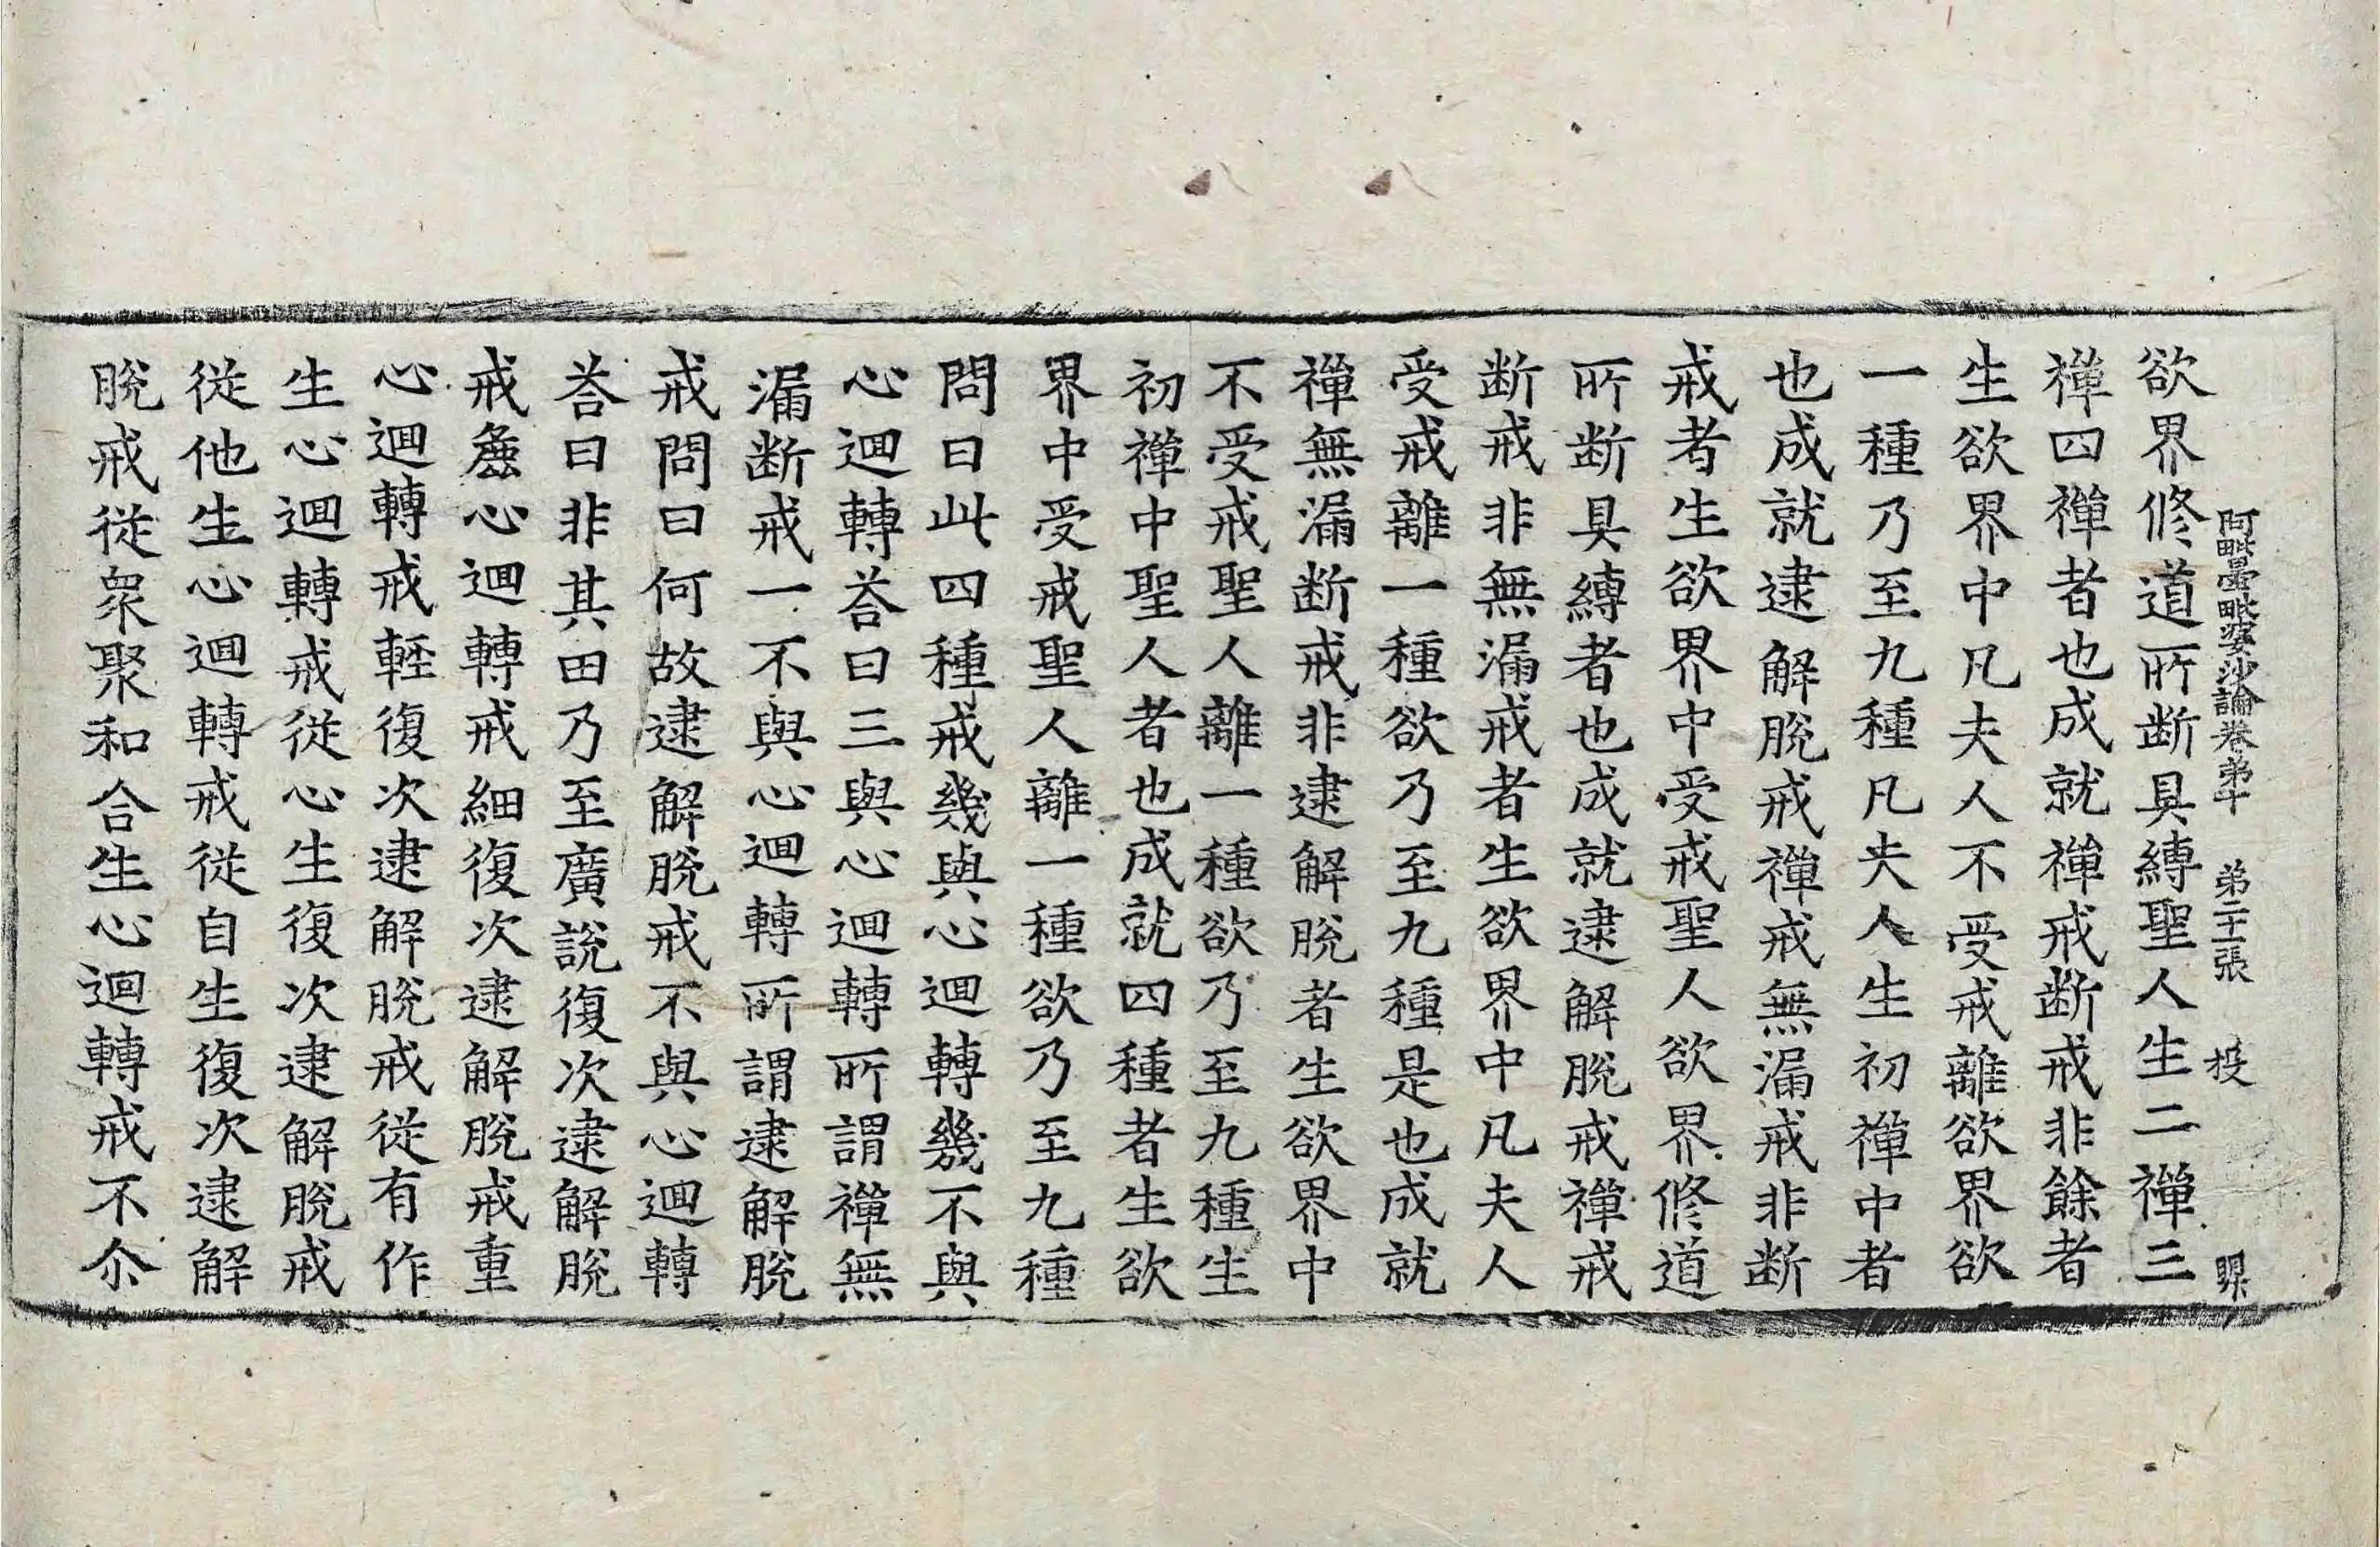 阿毗曇毗婆沙論卷弟十　弟二十一張　投　㬎
欲界修道所断具縛聖人生二禪三
禪四禪者也成就禪戒断戒非餘者
生欲界中凡夫人不受戒離欲界欲
一種乃至九種凡夫人生初禪中者
也成就逮解脫戒禪戒無漏戒非断
戒者生欲界中受戒聖人欲界修道
所断具縛者也成就逮解脫戒禪戒
断戒非無漏戒者生欲界中凡夫人
受戒離一種欲乃至九種是也成就
禪無漏断戒非逮解脫者生欲界中
不受戒聖人離一種欲乃至九種生
初禪中聖人者也成就四種者生欲
界中受戒聖人離一種欲乃至九種
問曰此四種戒幾與心迴轉幾不與
心迴轉荅曰三與心迴轉所謂禪無
漏断戒一不與心迴轉所謂逮解脫
戒問曰何故逮解脫戒不與心迴轉
荅曰非其田乃至廣說復次逮解脫
戒麁心迴轉戒細復次逮解脫戒重
心迴轉戒輕復次逮解脫戒從有作
生心迴轉戒從心生復次逮解脫戒
從他生心迴轉戒從自生復次逮解
脫戒從衆聚和合生心迴轉戒不尒